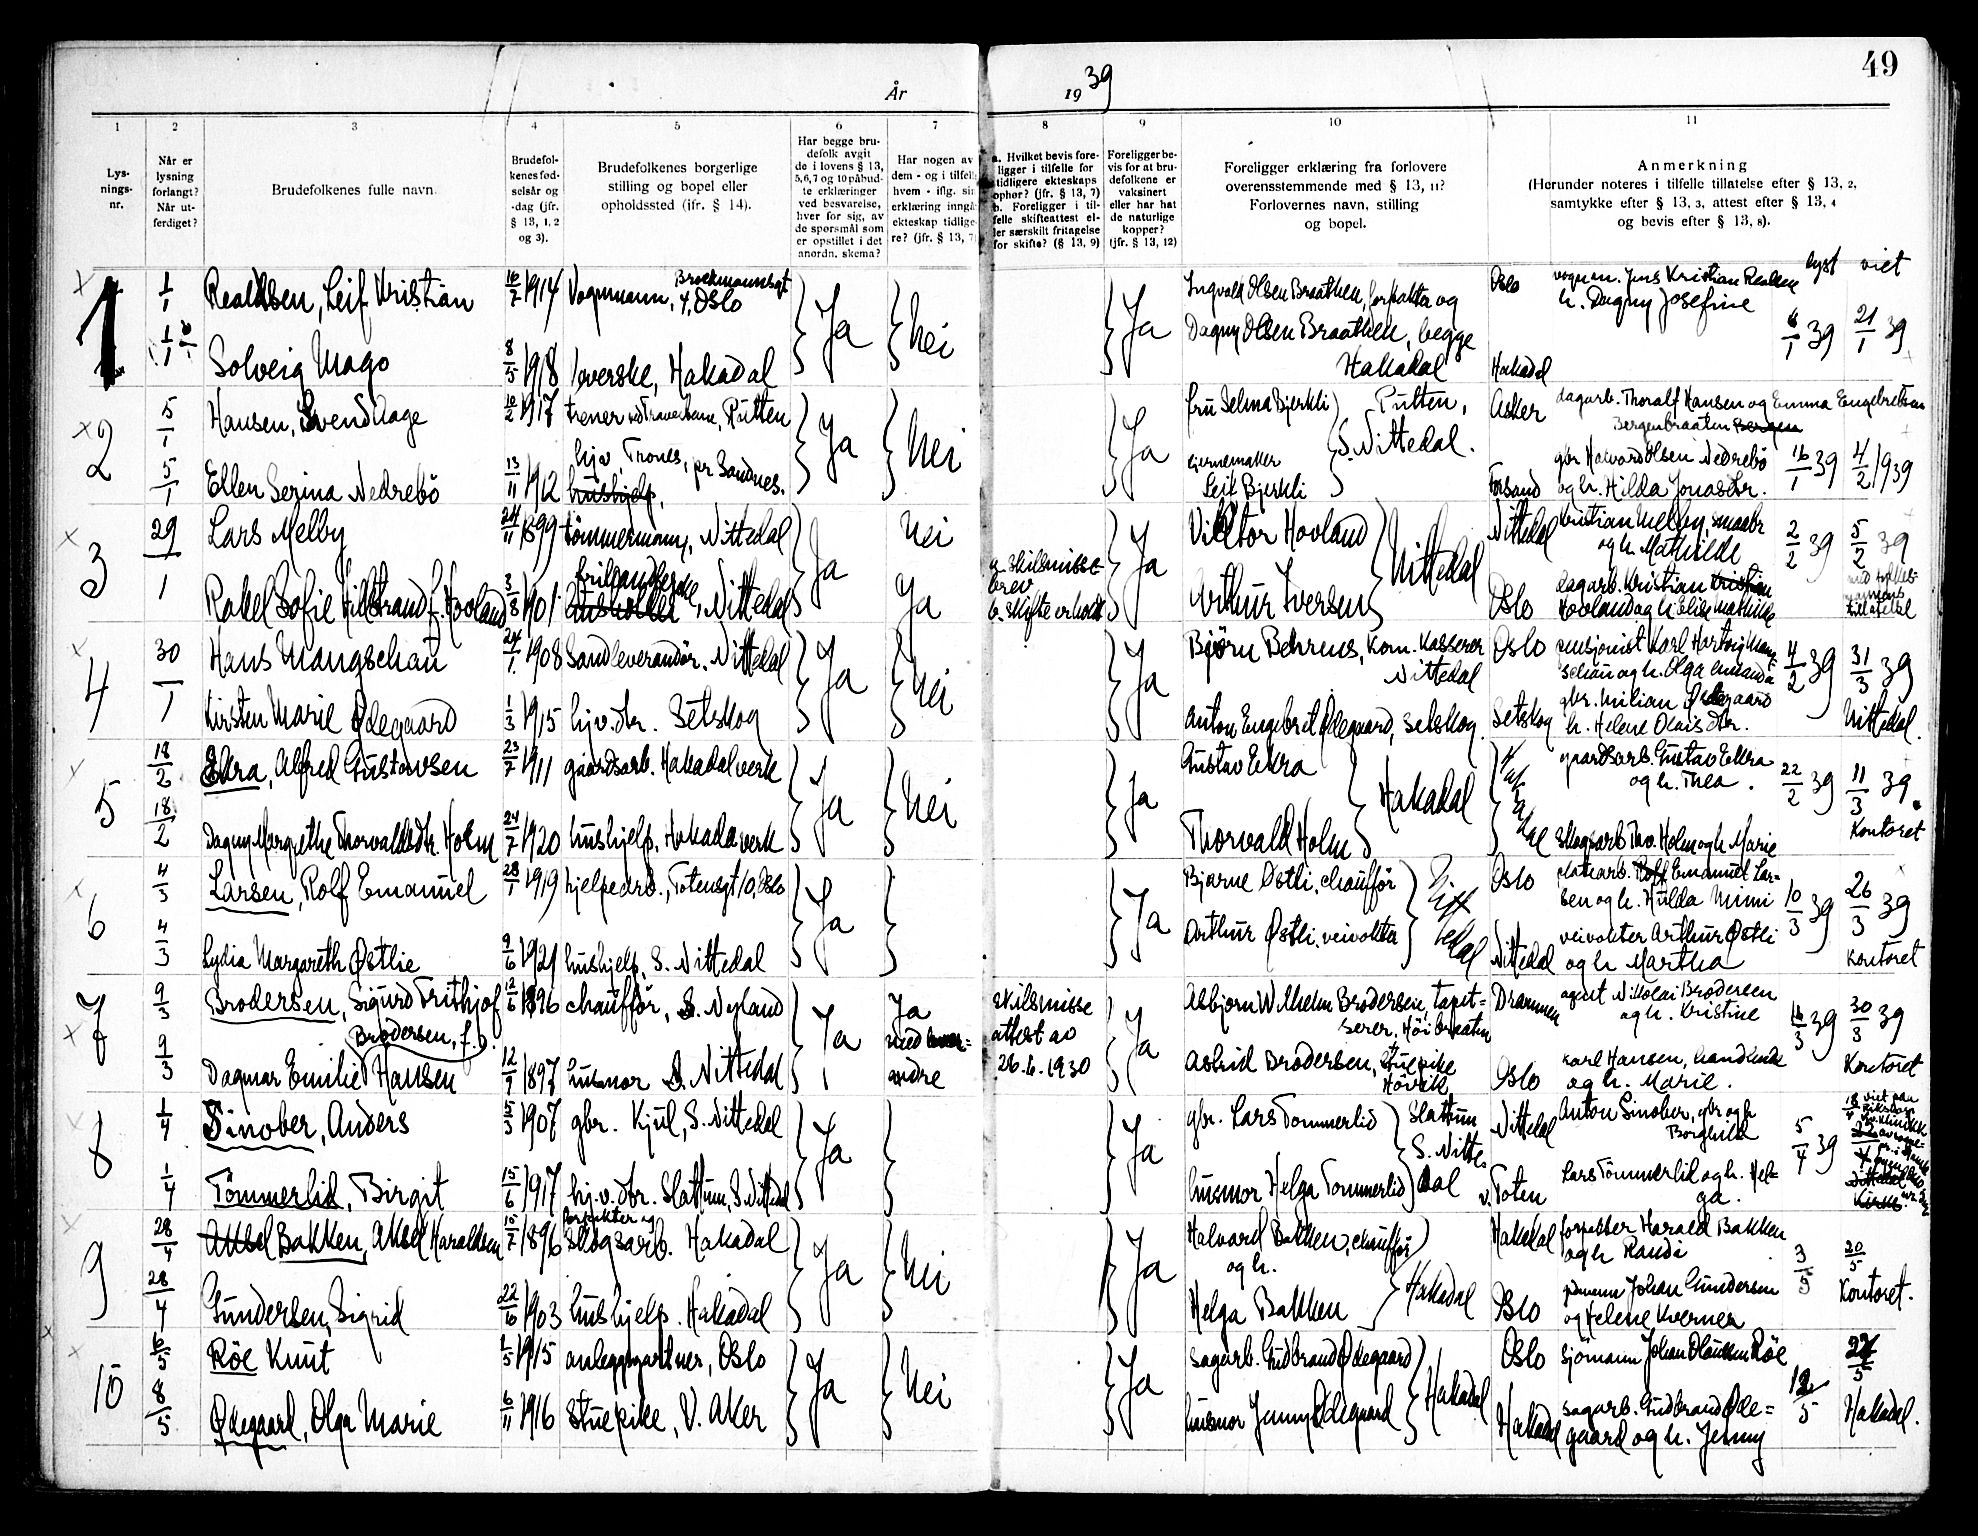 49
År 1939
1 2 3 4 5 6 7 8 9 10 11
Lys-
nings-
nr.
Når er
lysning
forlangt?
Når ut-
ferdiget?
Brudefolkenes fulle navn.
Brudefol-
kenes fød-
selsår og
-dag (jfr.
§ 13, 1, 2
og 3).
Brudefolkenes borgerlige
stilling og bopel eller
opholdssted (jfr. § 14).
Har begge bru-
defolk avgit
de i lovens § 13,
5,6,7 og 10 påbud-
te erklæringer
ved besvarelse,
hver for sig, av
de spørsmål som
er opstillet i det
anordn. skema?
Har nogen av
dem - og i tilfelle
hvem - iflg. sin
erklæring inngå
ekteskap tidlige-
re? (jfr. § 13, 7)
a. Hvilket bevis fore-
ligger i tilfelle for
tidligere ekteskaps
ophør? (jfr. § 13, 7)
b. Foreligger i til-
felle skifteattest el-
ler særskilt fritagelse
for skifte? (§ 13, 9)
Foreligger be-
vis for at bru-
defolkene er
vaksinert
eller har hat
de naturlige
kopper?
(jfr. § 13, 12)
Foreligger erklæring fra forlovere
overensstemmende med § 13, 11?
Forlovernes navn, stilling
og bopel.
Anmerkning
(Herunder noteres i tilfelle tillatelse efter § 13, 2,
samtykke efter § 13, 3, attest efter § 13, 4
og bevis efter § 13, 8).
lyst viet
1 1/1 Realdsen, Leif Kristian 16/7 1914 Vognmann, Brockmannsgt
4, Oslo Ja Nei Ja Ingvald Olsen Braathen, forpakter og Oslo vognm. Jens Kristian Realsen
h. Dagny Josefine
Dagny Olsen Braathen, begge 6/1 39 21/1 39
Solveig Mago 8/5 1918 Væverske, Hakadal Hakadal Hakadal
2 5/1 Hansen, Svend Aage 10/2 1917 trener ved Traverbane, Rutten Ja Nei Ja fru Selma Bjerkli Rutten, Asker dagarb. Thoralf Hansen og Emma Engebretsen
Bergenbraaten Bergen
S. Nittedal.
5/1 Ellen Serina Nedrebö 13/11 1912 hjv, Trones, pr Sandnes.
hushjelp, Leif Bjerkli Forsand gbr Halvard Olsen Nedrebö
og h. Hilda Jonasdtr. 16/1 39 4/2 1939
3 29/1 Lars Melby 24/11 1899 tömmermann, Nittedal Ja Nei Ja Viktor Hovland Nittedal Nittedal Kristian Melby smaabr
og h. Mathilde 2/2 39 5/2 39
Rakel Sofie Hillstrand f. Hovland 3/8 1901 Nittedal Ja a. skilsmisse-
brev
b. skifte erholdt Arthur Iversen Oslo dagarb. Kristian Kristian
Hovland og h. Elise Mathilde
tillatelse
4 30/1 Hans Mangschau 24/1 1908 Sandleverandör. Nittedal Ja Nei Ja Björn Behrens, Kom. Kasserer
Nittedal Oslo pensjonist Karl Hartvig Mang-
schau og h. Olga Amanda 4/2 39 31/3 39
Kirsten Marie Ødegaard 1/3 1915 hjv. dtr. Setskog Anton Engebret Ødegaard, Setskog Setskog gbr. Milian Ødegaard
h. Helene Olaisdtr. Nittedal.
5 18/2 Ekra, Alfred Gustavsen 23/7 1911 gaardsarb. Hakadalverk Ja Nei Ja Gustav Ekra Hakadal Hakadal gaardsarb. Gustav Ekra
og h. Thea. 22/2 39 11/3 39.
18/2 Dagny Margrethe Thorvaldsdtr. Holm 24/7 1920 hushjelp, Hakadalverk Thorvald Holm Skogsarb Thv. Holm og h. Marie Kontoret
6 4/3 Larsen, Rolf Emanuel 28/1 1919 hjelpearb., Totensgt 10, Oslo Ja Ja Bjarne Østli, chauffør Nittedal Oslo Rolf Emanuel Lar-
sen og h. Hulda Mimi 10/3 39 26/3 39
4/3 Lydia Margareth Østlie 9/6 1921 hushjelp, S. Nittedal Arthur Østli, veivokter Nittedal veivokter Arthur Østli
og h Martha Kontoret
7 9/3 Brodersen, Sigurd Frithjof 12/6 1896 chauffør, S. Nyland Ja Ja
med hver-
andre skilsmisse
attest av
26.6.1930 Ja Asbjørn Wilhelm Brodersen, tapet-
serer, Höibraaten Drammen agent Nikolai Brodersen
og h. Kristine 16/3 39 30/3 39
Brodersen, f.
9/3 Dagmar Emilie Hansen 12/9 1897 husmor S. Nittedal Astrid Brodersen, stuepike
Hövik Oslo Karl Hansen,
og h. Marie. Kontoret
8 1/4 Sinober, Anders 5/3 1907 gbr. Kjul, S. Nittedal Ja Ja gbr. Lars Tømmerlid Slattum
S. Nitte-
dal Nittedal Anton Sinober, gbr og h
Borghild 5/4 39 18/4 viet paa
1/4 Tömmerlid, Birgit 15/6 1917 hj.v. dtr. Slattum, S. Nittedal husmor Helga Tommerlid v. Toten Lars Tömmerlid og h. Hel-
ga. Nittedal
Kirke.
9 28/4 Aksel Bakken, Aksel Haraldsen 15/7 1896 forpakter og
Skogsarb. Hakadal Ja Nei Ja Halvard Bakken, chauffør
og h. Hakadal forpakter Harald Bakken
og h Randi 3/5 20/5
28/4 Gundersen, Sigrid 22/6 1903 hushjelp. Hakadal Helga Bakken Hakadal Oslo Johan Gundersen
og Helene Kverner Kontoret.
10 6/5 Röe Knut 1/5 1915 anleggsgartner, Oslo Ja Nei Ja Sagarb. Gudbrand Ødegaard Hakadal Oslo Sjømann Johan Olausen Röe 12/5
8/5 Ødegaard, Olga Marie 6/11 1916 Stuepike, V. Aker husmor Jenny Ødegaard Hakadal sagarb. Gudbrand Øde=
gaard og h. Jenny Hakadal.